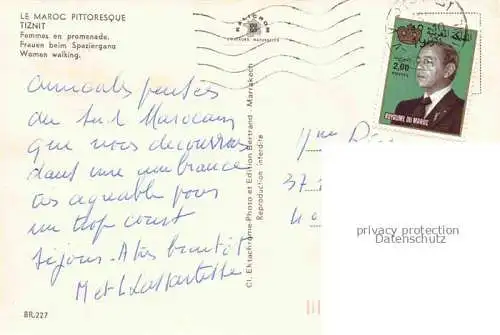 LE MAROC PITTORESQUE
TIZNIT
Femmes en promenade.
Frauen beim Spaziergang
Women walking.
amicales pensées
du Sud Marocain
que nous découvrons
dans une ambiance
très agréable pour
un trop court
séjour. A très bientôt
M et
BR.227
Cl. Ektachrome-Photo et Edition Bertrand - Marrakech
Reproduction interdite
المملكة المغربية
2,00
POSTES
ROYAUME DU MAROC
37
privacy protection
Datenschutz